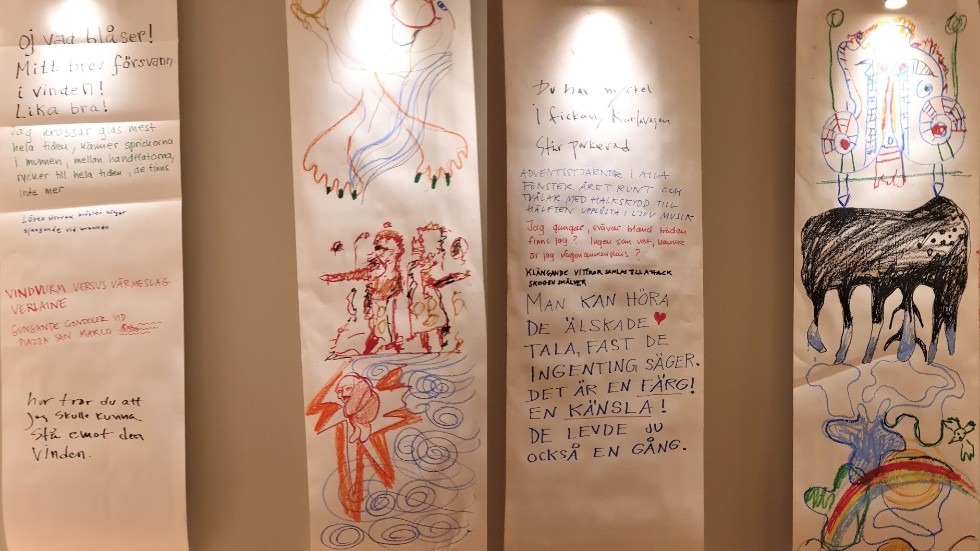 Oj vad blåser!
Mitt brev försvann
i vinden!
Lika bra!
Jag krossar glas mest
hela tiden, känner sprickorna
i munnen, mellan handflatorna,
rycker till hela tiden, de finns
inte mer
VINDVURM VERSUS VÄRMESLAG
VERLAINE
GUNGANDE GONDOLER VID
PIAZZA SAN MARCO
hur tror du att
jag skulle kunna
stå emot den
vinden.
Du har mycket
i fickan, Karlavagen
står parkerad
ADVENTSSTJÄRNOR I ALLA
FÖNSTER ÅRET RUNT OCH
TVÅLAR MED HALKSKYDD TILL
HÄLFTEN UPPLÖSTA I LJUV MUSIK
Jag gungar, svävar bland träden
finns jag? Ingen som vet, kanske
är jag
KLÄNGANDE VITTROR SAMLAS TILL ATTACK
SKOGEN SMÄLTER
MAN KAN HÖRA
DE ÄLSKADE
TALA, FAST DE
INGENTING SÄGER.
DET ÄR EN FÄRG!
EN KÄNSLA!
DE LEVDE JU
OCKSÅ EN GÅNG.